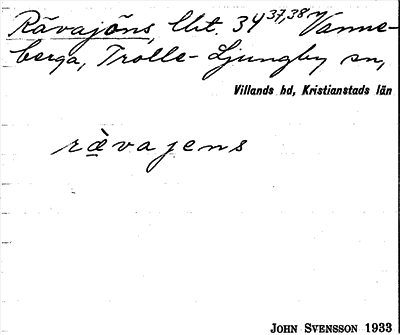 Rävajöns, lht. 34 37,38 Vanne-
berga, Trolle-Ljungby sn,
Villands hd, Kristianstads län
rävajens
JOHN SVENSSON 1933